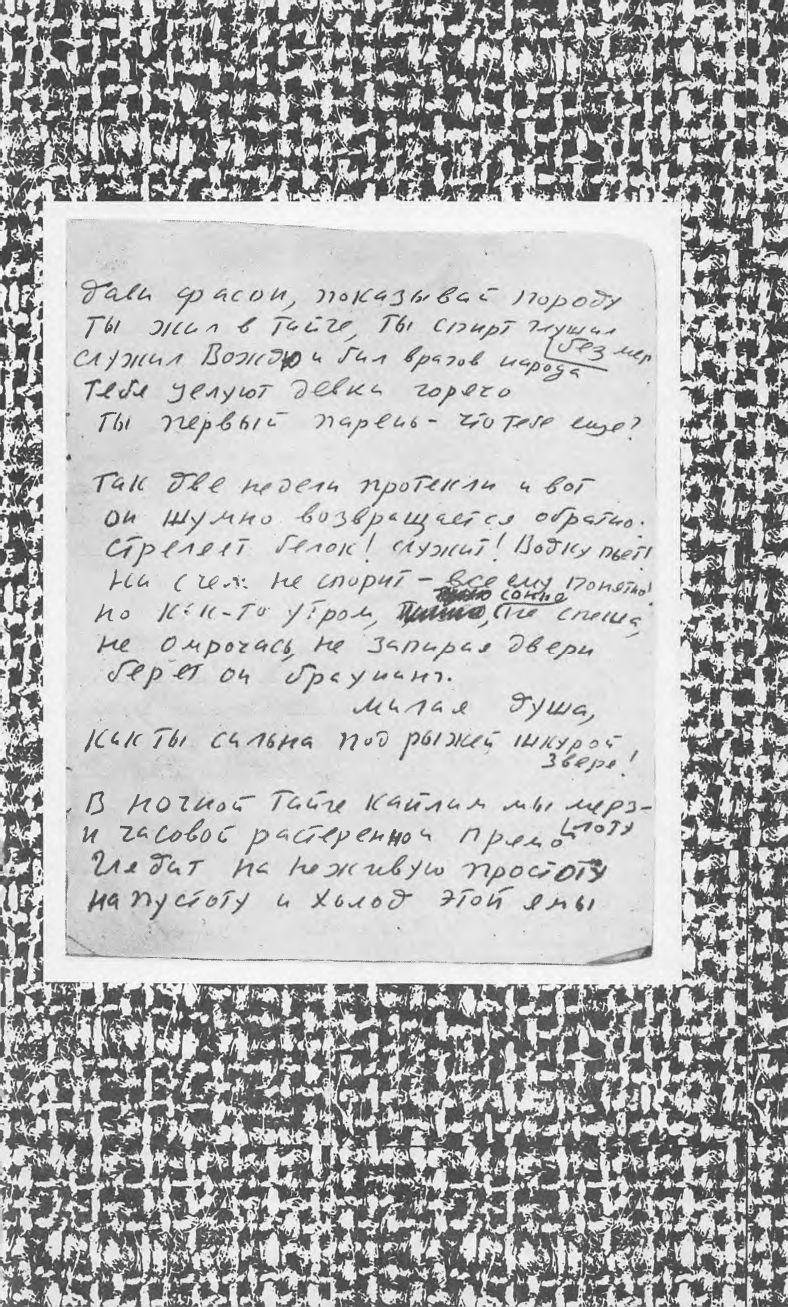 дави фасон, показывай породу
Ты жил в тайге, Ты спирт глушил
без мер
служил Вождю и бил врагов народа
Тебя целуют девки горячо
Ты первый парень - что тебе еще?
Так две недели протекли и вот
он шумно возвращается обратно.
Стреляет белок! служит! Водку пьет!
Ни с чем не спорит - все ему понятно!
но как-то утром, сонно, не спеша,
не омрачась, не запирая двери
берет он браунинг.
милая душа,
как ты сильна под рыжей шкурой
зверя!
В ночной тайге кайлим мы мерз-
лоту
и часовой растерянно и прямо
Глядит на неживую простоту
на пустоту и холод этой ямы